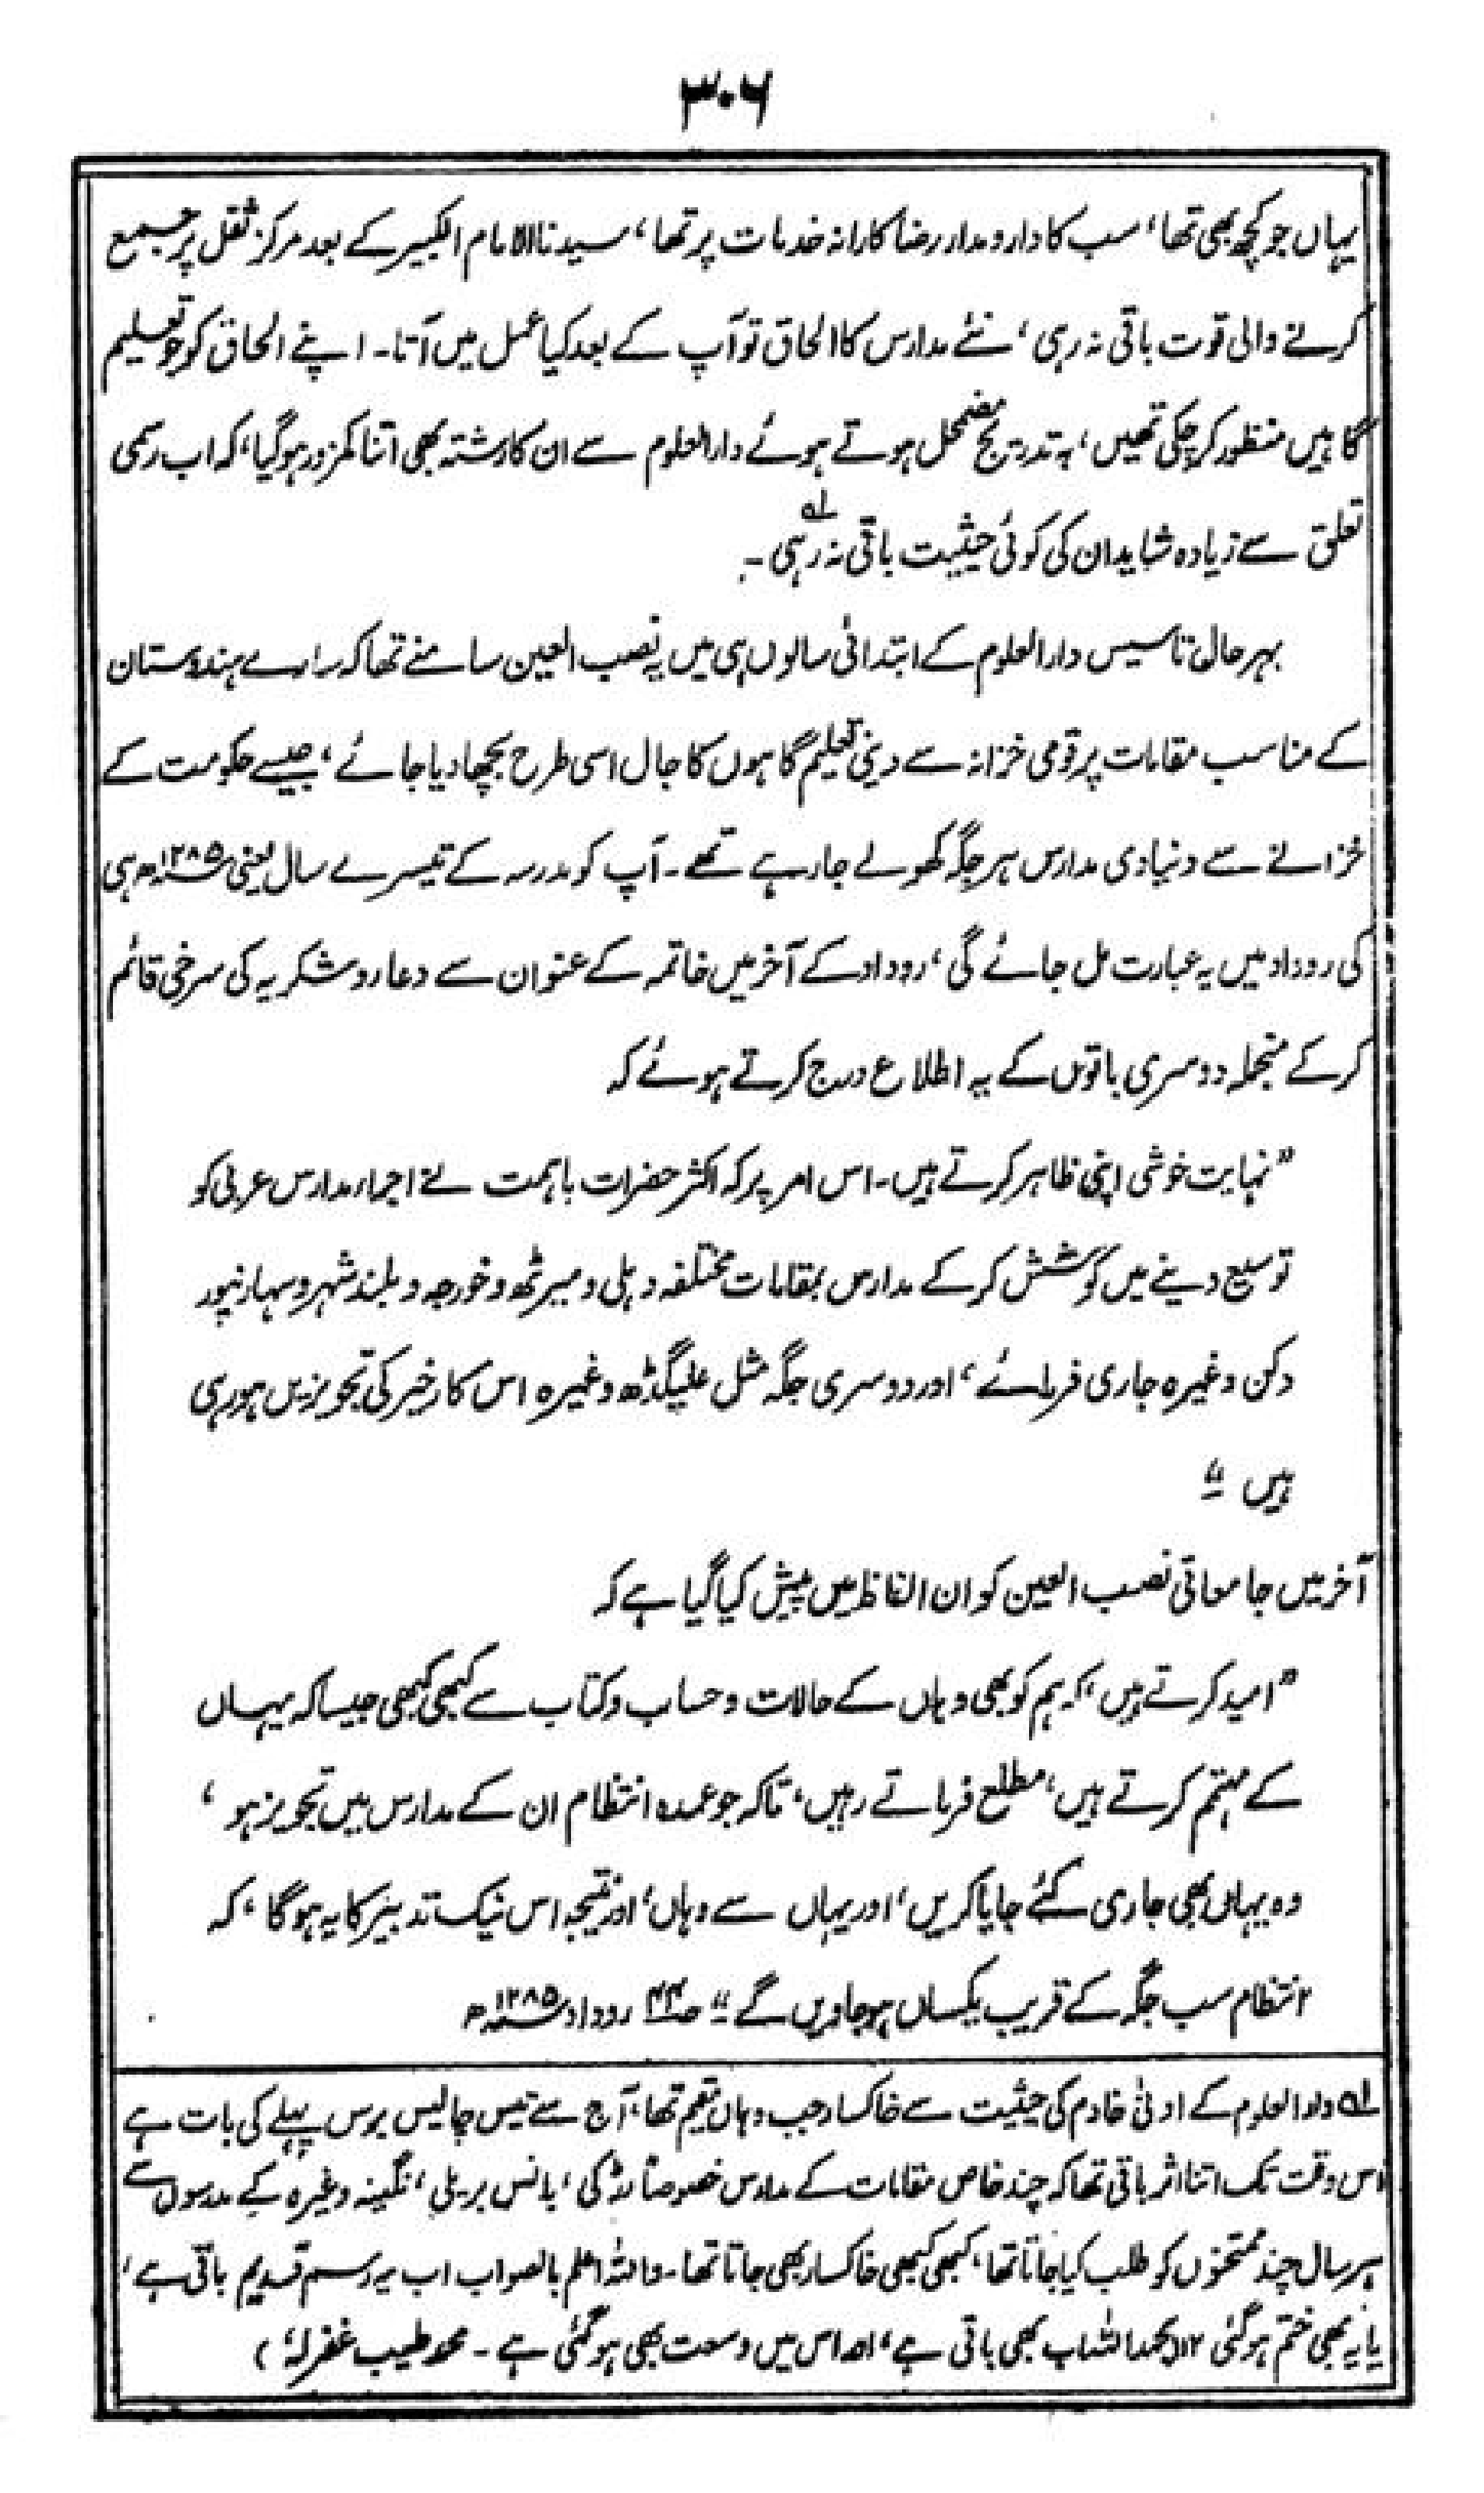 ۳۰۶
یہاں جو کچھ بھی تھا، سب کا دارو مدار رضا کارانہ خدمات پر تھا، سیدنا الامام الکبیر کے بعد مرکز ثقل پر جمیع
کرنے والی قوت باقی نہ رہی، نئے مدارس کا الحاق تو آپ کے بعد کیا عمل میں آتا۔ اپنے الحاق کو جو تعلیم
گاہیں منظور کر چکی تھیں، بہ تدریج مضمحل ہوتے ہوئے دارالعلوم سے ان کا رشتہ بھی اتنا کمزور ہوگیا، کہ اب رسمی
تعلق سے زیادہ شاید ان کی کوئی حیثیت باقی نہ رہی۔ لہ
بہرحال تاسیس دارالعلوم کے ابتدائی سالوں ہی میں یہ نصب العین سامنے تھا کہ سارے ہندوستان
کے مناسب مقامات پر قومی خزانہ سے دینی تعلیم گاہوں کا جال اسی طرح بچھا دیا جائے، جیسے حکومت کے
خزانے سے دنیاوی مدارس ہر جگہ کھولے جارہے تھے۔ آپ کو مدرسہ کے تیسرے سال یعنی ۱۲۸۵ھ ہی
کی روداد میں یہ عبارت مل جائے گی، روداد کے آخر میں خاتمہ کے عنوان سے دعا رو شکریہ کی سرخی قائم
کرکے منجملہ دوسری باتوں کے یہ اطلاع درج کرتے ہوئے کہ
”نہایت خوشی اپنی ظاہر کرتے ہیں۔ اس امر پر کہ اکثر حضرات باہمت نے اجراء مدارس عربی کو
توسیع دینے میں کوشش کرکے مدارس بمقامات مختلفہ دہلی و میرٹھ و خورجہ و بلند شہر و سہارنپور
دکن وغیرہ جاری فرمائے، اور دوسری جگہ مثل علیگڈھ وغیرہ اس کار خیر کی تجویزیں ہورہی
ہیں“
آخر میں جامعاتی نصب العین کو ان الفاظ میں پیش کیا گیا ہے کہ
”امید کرتے ہیں، کہ ہم کو بھی وہاں کے حالات و حساب و کتاب سے کبھی کبھی جیسا کہ یہاں
کے مہتمم کرتے ہیں، مطلع فرماتے رہیں، تاکہ جو عمدہ انتظام ان کے مدارس میں تجویز ہو،
وہ یہاں بھی جاری کئے جایا کریں، اور یہاں سے وہاں، اور نتیجہ اس نیک تدبیر کا یہ ہوگا، کہ
انتظام سب جگہ کے قریب یکساں ہوجاویں گے“ روداد ۱۲۸۵ھ
لہ دارالعلوم کے ادنیٰ خادم کی حیثیت سے خاکسار جب وہاں مقیم تھا، آج سے تیس چالیس برس پہلے کی بات ہے
اس وقت تک اتنا اثر باقی تھا کہ چند خاص مقامات کے مدارس خصوصاً رڑکی، بانس بریلی، نگینہ وغیرہ کے مدرسوں سے
ہر سال چند ممتحنوں کو طلب کیا جاتا تھا، کبھی کبھی خاکسار بھی جاتا تھا۔ واللہ اعلم بالصواب اب یہ رسم قدیم باقی ہے،
یا یہ بھی ختم ہوگئی ۱۲ (بحمد اللہ اب بھی باقی ہے، اور اس میں وسعت بھی ہوگئی ہے۔ محمد طیب غفرلہٗ)